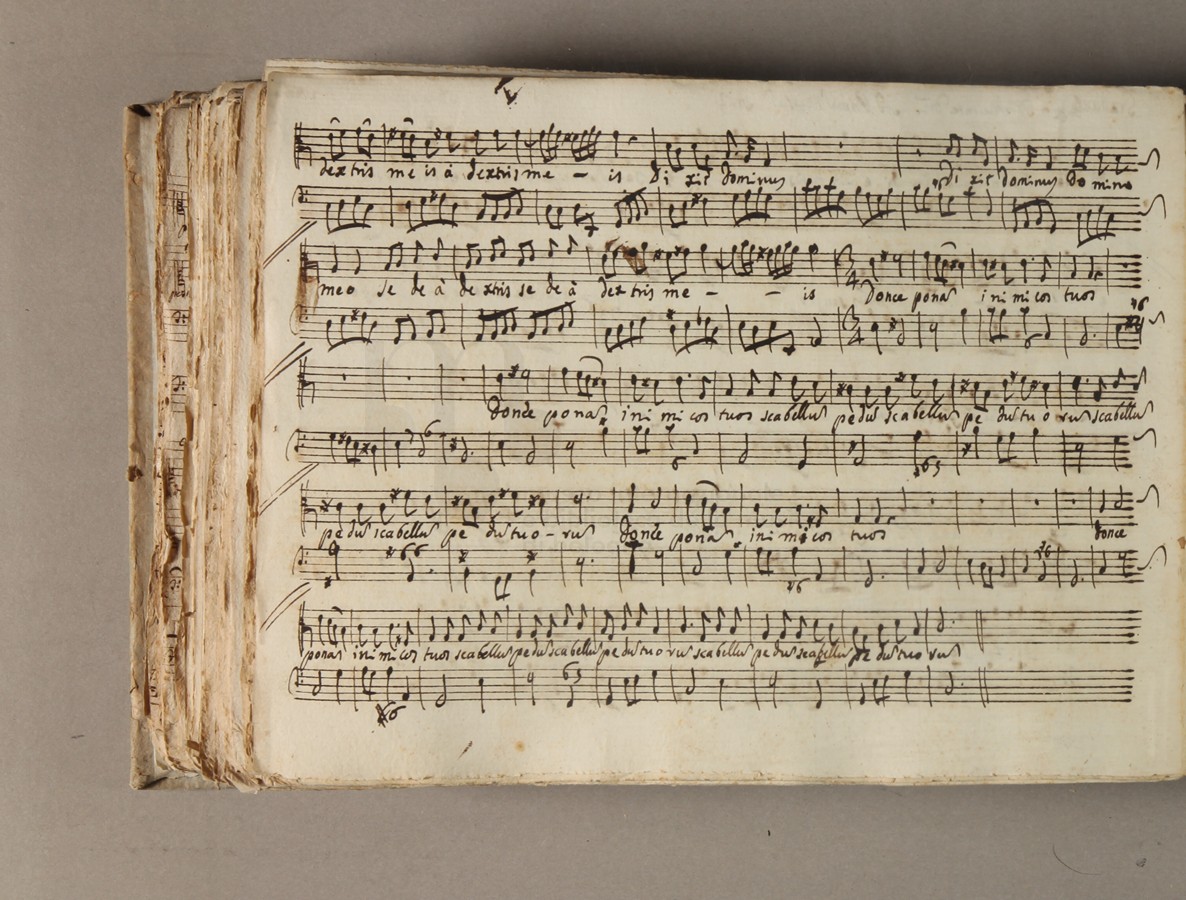 dextris me is à dextris me – is Di xit Dominus Di xit dominus Do mino
meo se de à de xtris se de à dex tris me – – is Donec ponā inimicos tuos
donec ponā inimicos tuos scabellū pedū scabellū pe dū tu o rū scabellū
pedū scabellū pe dū tuo – rū donec ponā inimicos tuos donec
ponā inimicos tuos scabellū pedū scabellū pe dū tuo rū scabellū pedū scabellū pe dū tuo rū